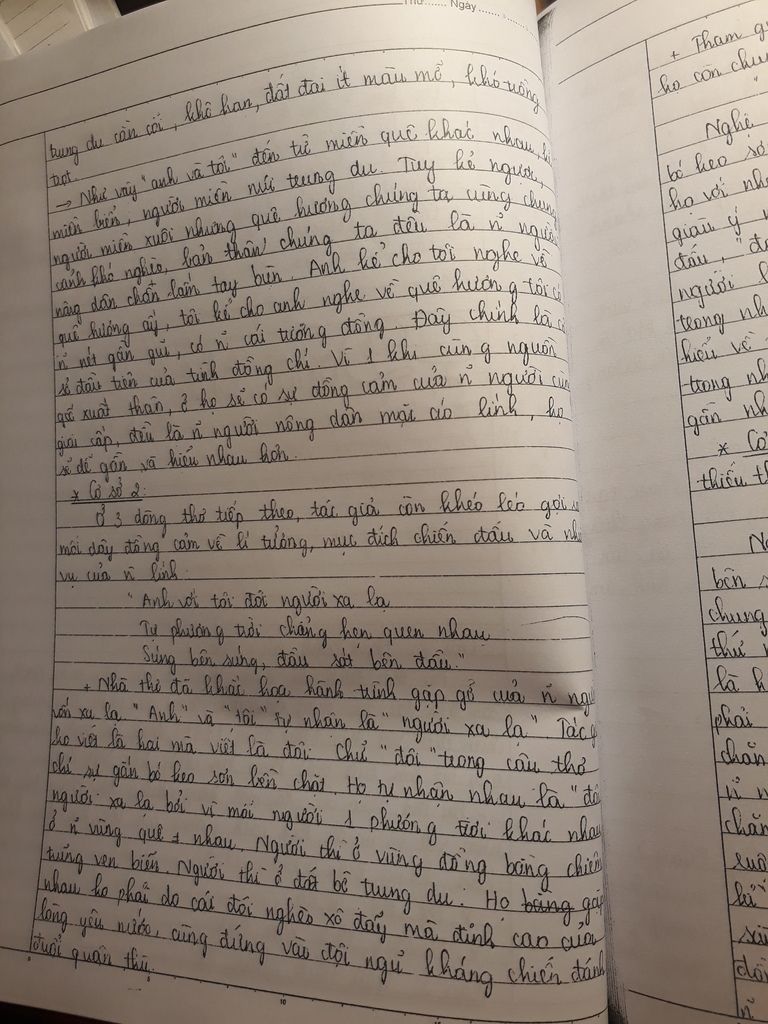 Thứ....... Ngày.......
trung du cằn cỗi, khô han, đất đai ít màu mỡ, khó trồng
trọt.
→ Như vậy "anh và tôi" đến từ miền quê khác nhau,
miền biển, người miền núi trung du. Tuy kẻ người,
người miền xuôi nhưng quê hương chúng ta cùng chung
cảnh khó nghèo, bản thân chúng ta đều là n̄ người
nông dân chân lấm tay bùn. Anh kể cho tôi nghe về
quê hương ấy, tôi kể cho anh nghe về quê hương tôi có
n̄ nét gần gũi, có n̄ cái tương đồng. Đây chính là cơ
sở đầu tiên của tình đồng chí. Vì 1 khi cùng nguồn
gốc xuất thân, ở họ sẽ có sự đồng cảm của n̄ người cùng
giai cấp, đều là n̄ người nông dân mặc áo lính, họ
sẽ dễ gần và hiểu nhau hơn.
* Cơ sở 2:
Ở 3 dòng thơ tiếp theo, tác giả còn khéo léo gợi
mối dây đồng cảm về lí tưởng, mục đích chiến đấu và
vụ của n̄ lính:
"Anh với tôi đôi người xa lạ
Tự phương trời chẳng hẹn quen nhau
Súng bên súng, đầu sát bên đầu."
+ Nhà thơ đã khắc họa hành trình gặp gỡ của n̄
vốn xa lạ. "Anh" và "tôi" tự nhận là "người xa lạ". Tác
ko viết là hai mà viết là đôi. Chữ "đôi" trong câu thơ
chỉ sự gắn bó keo sơn bền chặt. Họ tự nhận nhau là "đôi
người xa lạ bởi vì mỗi người 1 phương trời khác nhau
ở n̄ vùng quê ≠ nhau. Người thì ở vùng đồng bằng chiêm
trũng ven biển. Người thì ở đất bê trung du. Họ bằng gặp
nhau ko phải do cái đói nghèo xô đẩy mà đỉnh cao của
lòng yêu nước, cùng đứng vào đội ngũ kháng chiến đánh
đuổi quân thù.
+ Tham
họ còn chung
Nghệ
bó keo sơ
họ với
giàu ý
đấu, "
người
trong
hiểu về
trong
gần
* Cơ
thiếu
bên
chung
thứ
là
phải
chăn
n̄
chăn